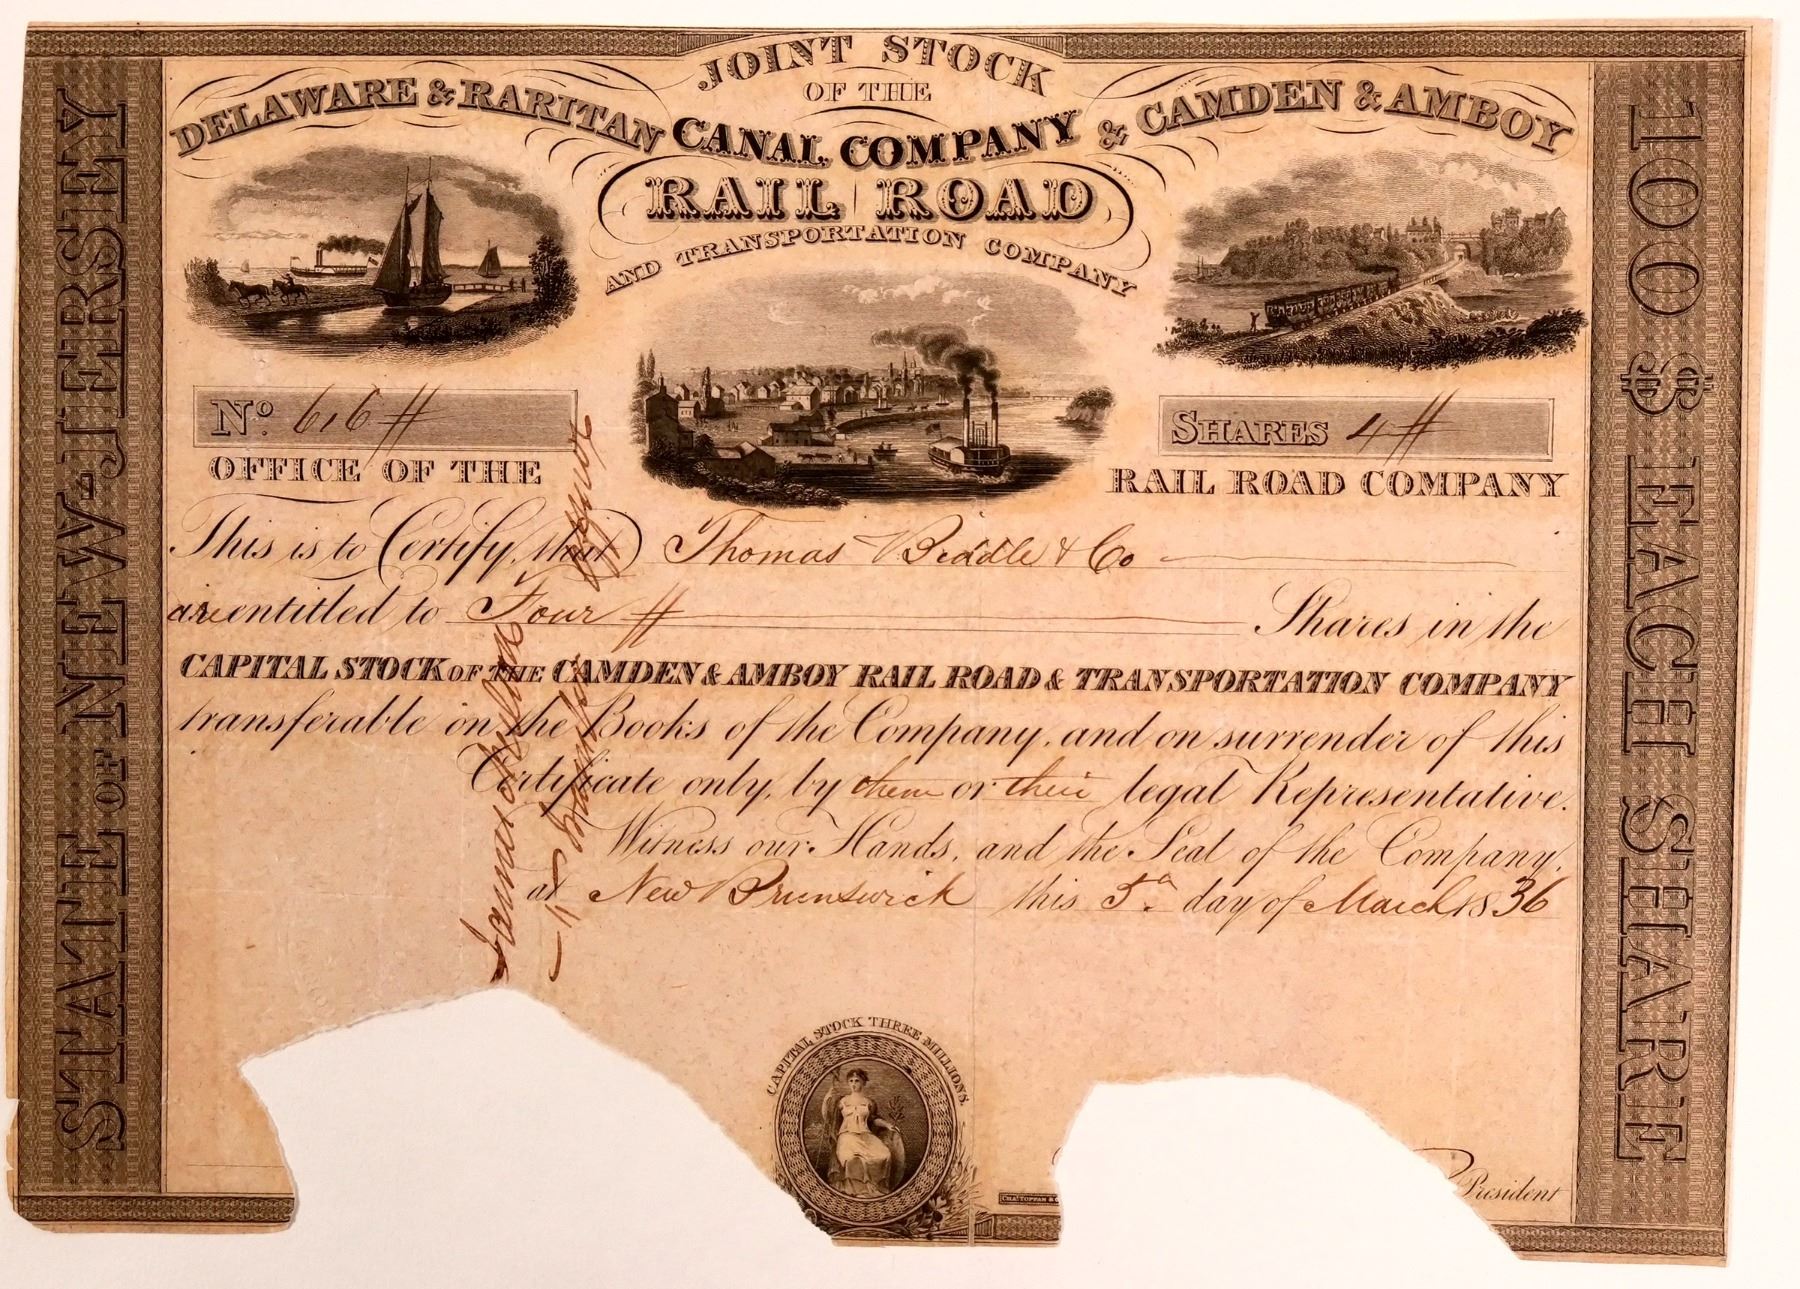 JOINT STOCK
OF THE
DELAWARE & RARITAN CANAL COMPANY & CAMDEN & AMBOY
RAIL ROAD
AND TRANSPORTATION COMPANY
STATE OF NEW-JERSEY
100 $ EACH SHARE
No. 616
SHARES 4
OFFICE OF THE
RAIL ROAD COMPANY
This is to Certify, that Thomas Biddle & Co
are entitled to Four Shares in the
CAPITAL STOCK OF THE CAMDEN & AMBOY RAIL ROAD & TRANSPORTATION COMPANY
transferable on the Books of the Company, and on surrender of this
Certificate only, by them or their legal Representative.
Witness our Hands, and the Seal of the Company,
at New Brunswick this 5th day of March 1836
CAPITAL STOCK THREE MILLIONS.
President